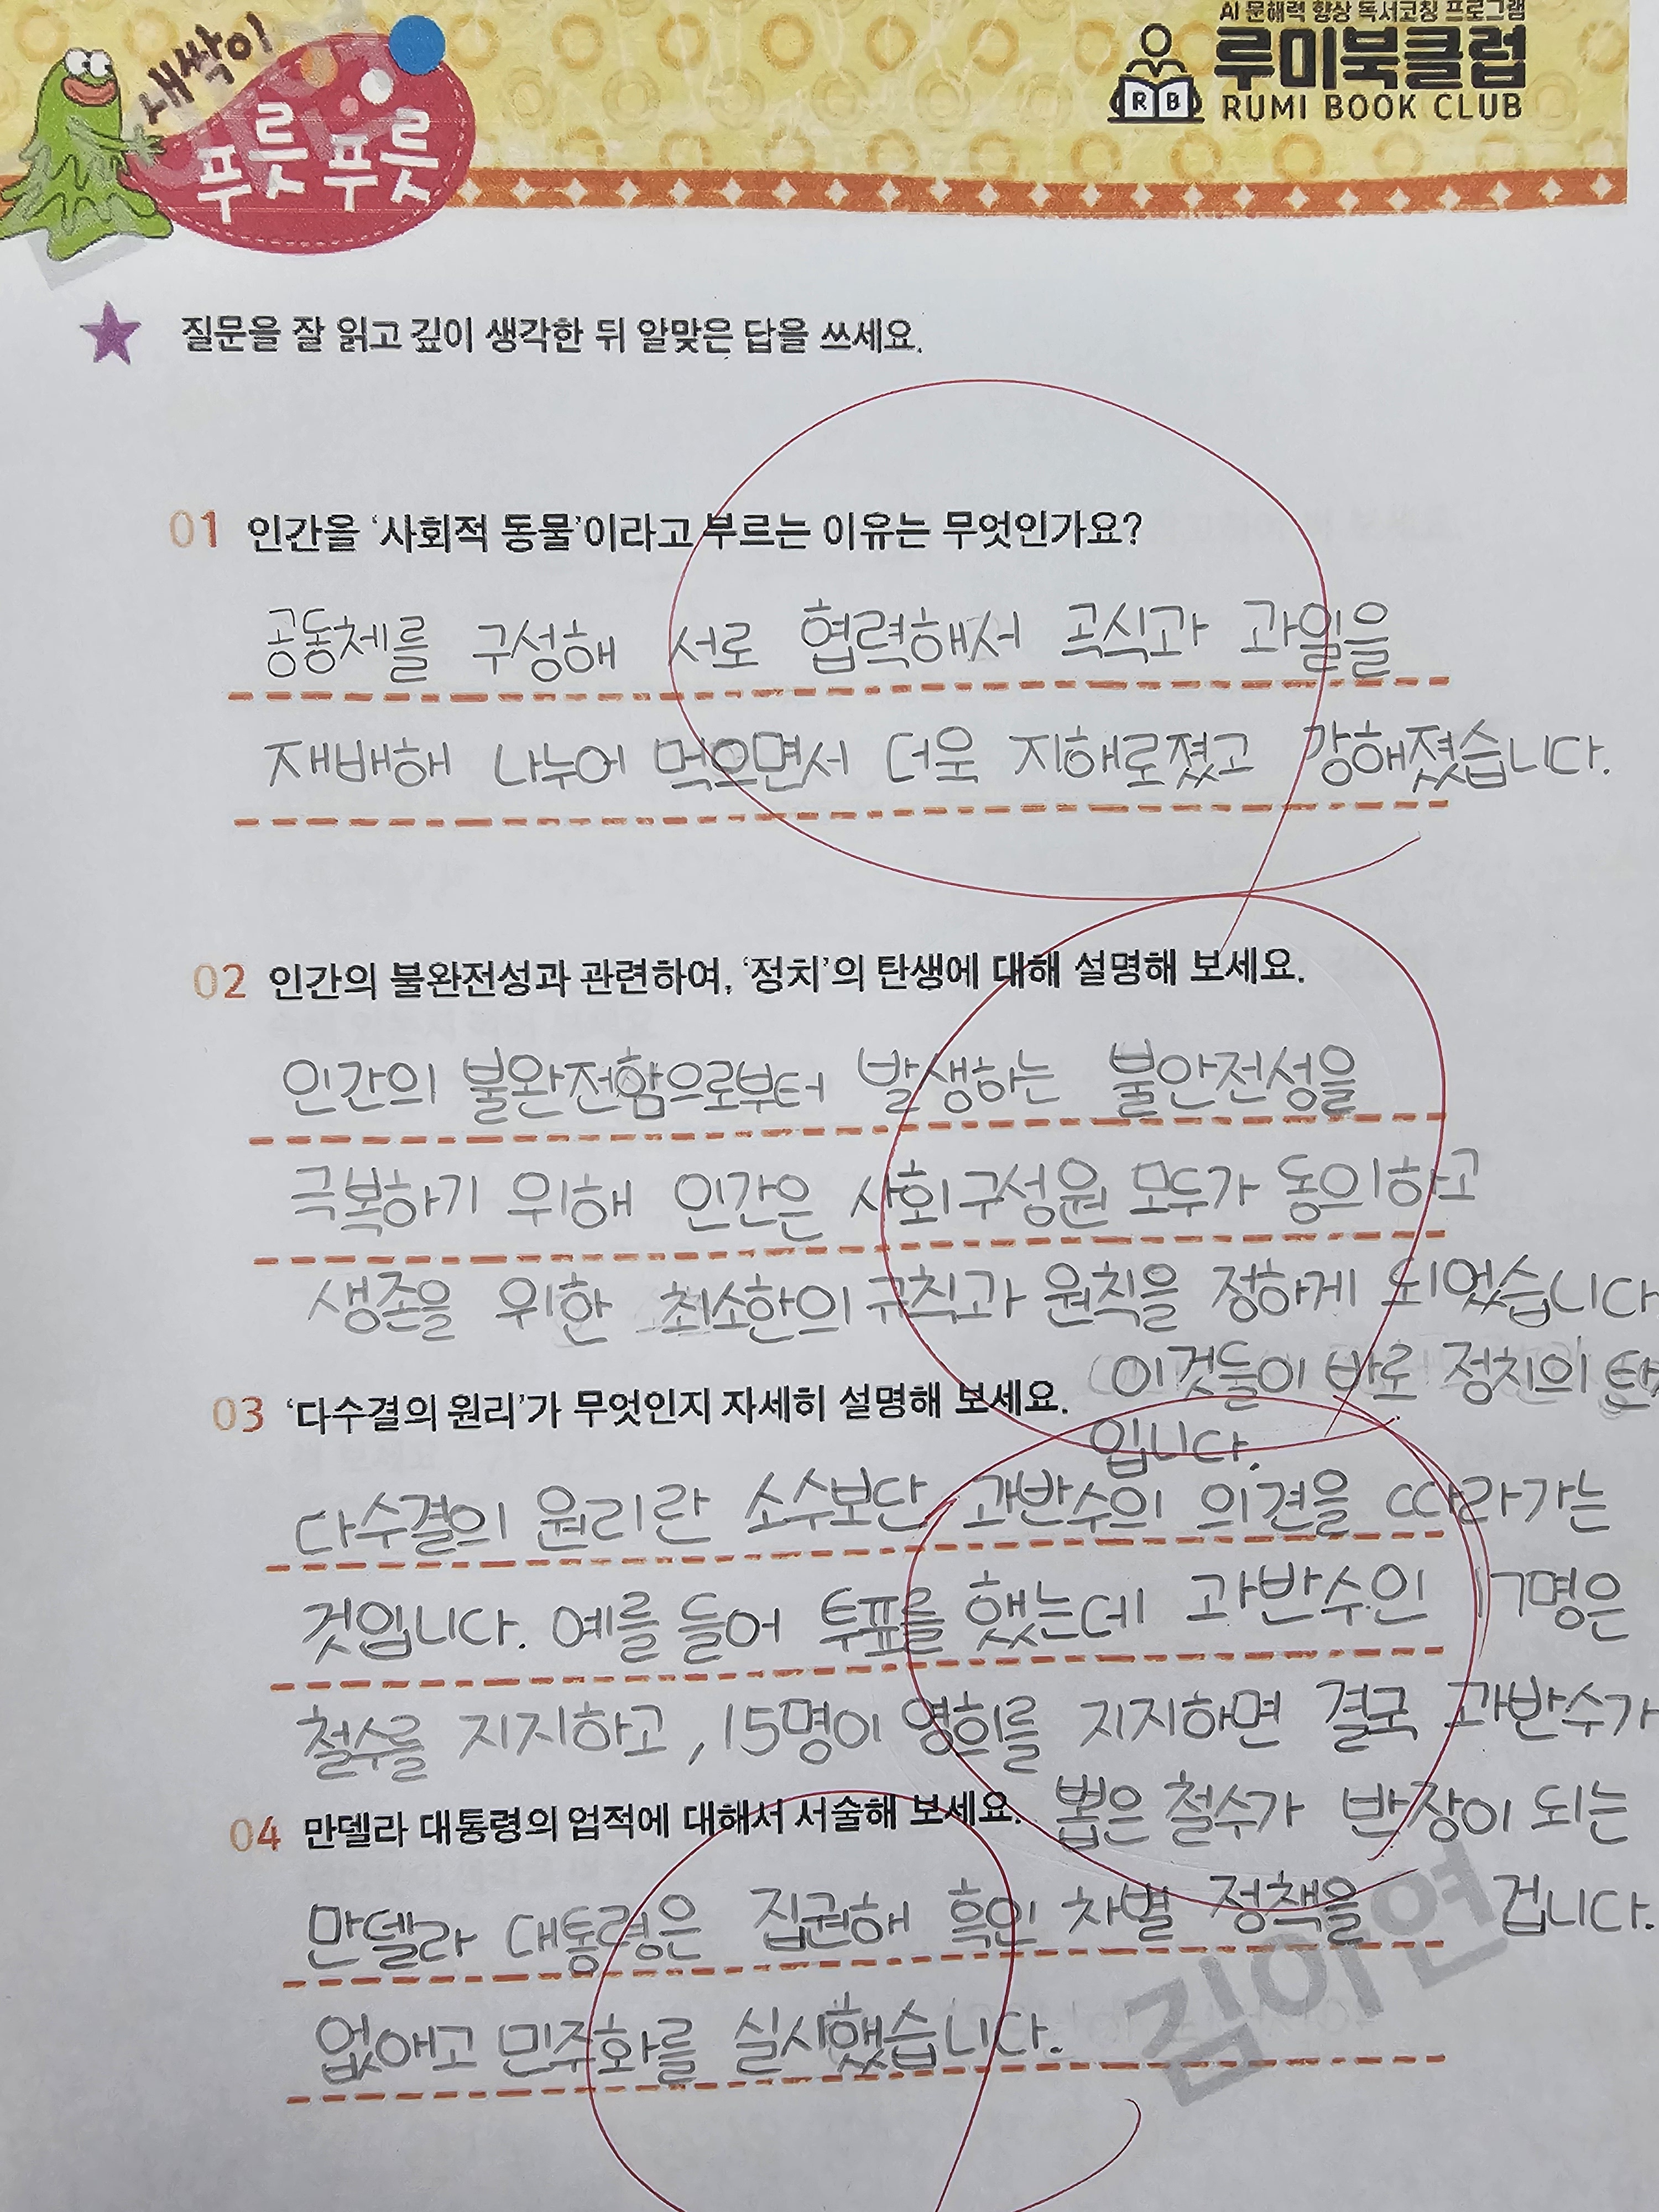 AI 문해력 향상 독서코칭 프로그램
루미북클럽
RUMI BOOK CLUB
R B
새싹이
푸릇푸릇
질문을 잘 읽고 깊이 생각한 뒤 알맞은 답을 쓰세요.
01 인간을 '사회적 동물'이라고 부르는 이유는 무엇인가요?
공동체를 구성해 서로 협력해서 곡식과 과일을
재배해 나누어 먹으면서 더욱 지혜로졌고 강해졌습니다.
02 인간의 불완전성과 관련하여, '정치'의 탄생에 대해 설명해 보세요.
인간의 불완전함으로부터 발생하는 불안전성을
극복하기 위해 인간은 사회구성원 모두가 동의하고
생존을 위한 최소한의 규칙과 원칙을 정하게 되었습니다
이것들이 바로 정치의
입니다.
03 '다수결의 원리'가 무엇인지 자세히 설명해 보세요.
다수결의 원리란 소수보단 과반수의 의견을 따라가는
것입니다. 예를 들어 투표를 했는데 과반수인 17명은
철수를 지지하고, 15명이 영희를 지지하면 결국 과반수가
뽑은 철수가 반장이 되는
겁니다.
04 만델라 대통령의 업적에 대해서 서술해 보세요.
만델라 대통령은 집권해 흑인 차별 정책을
없애고 민주화를 실시했습니다.
김이연